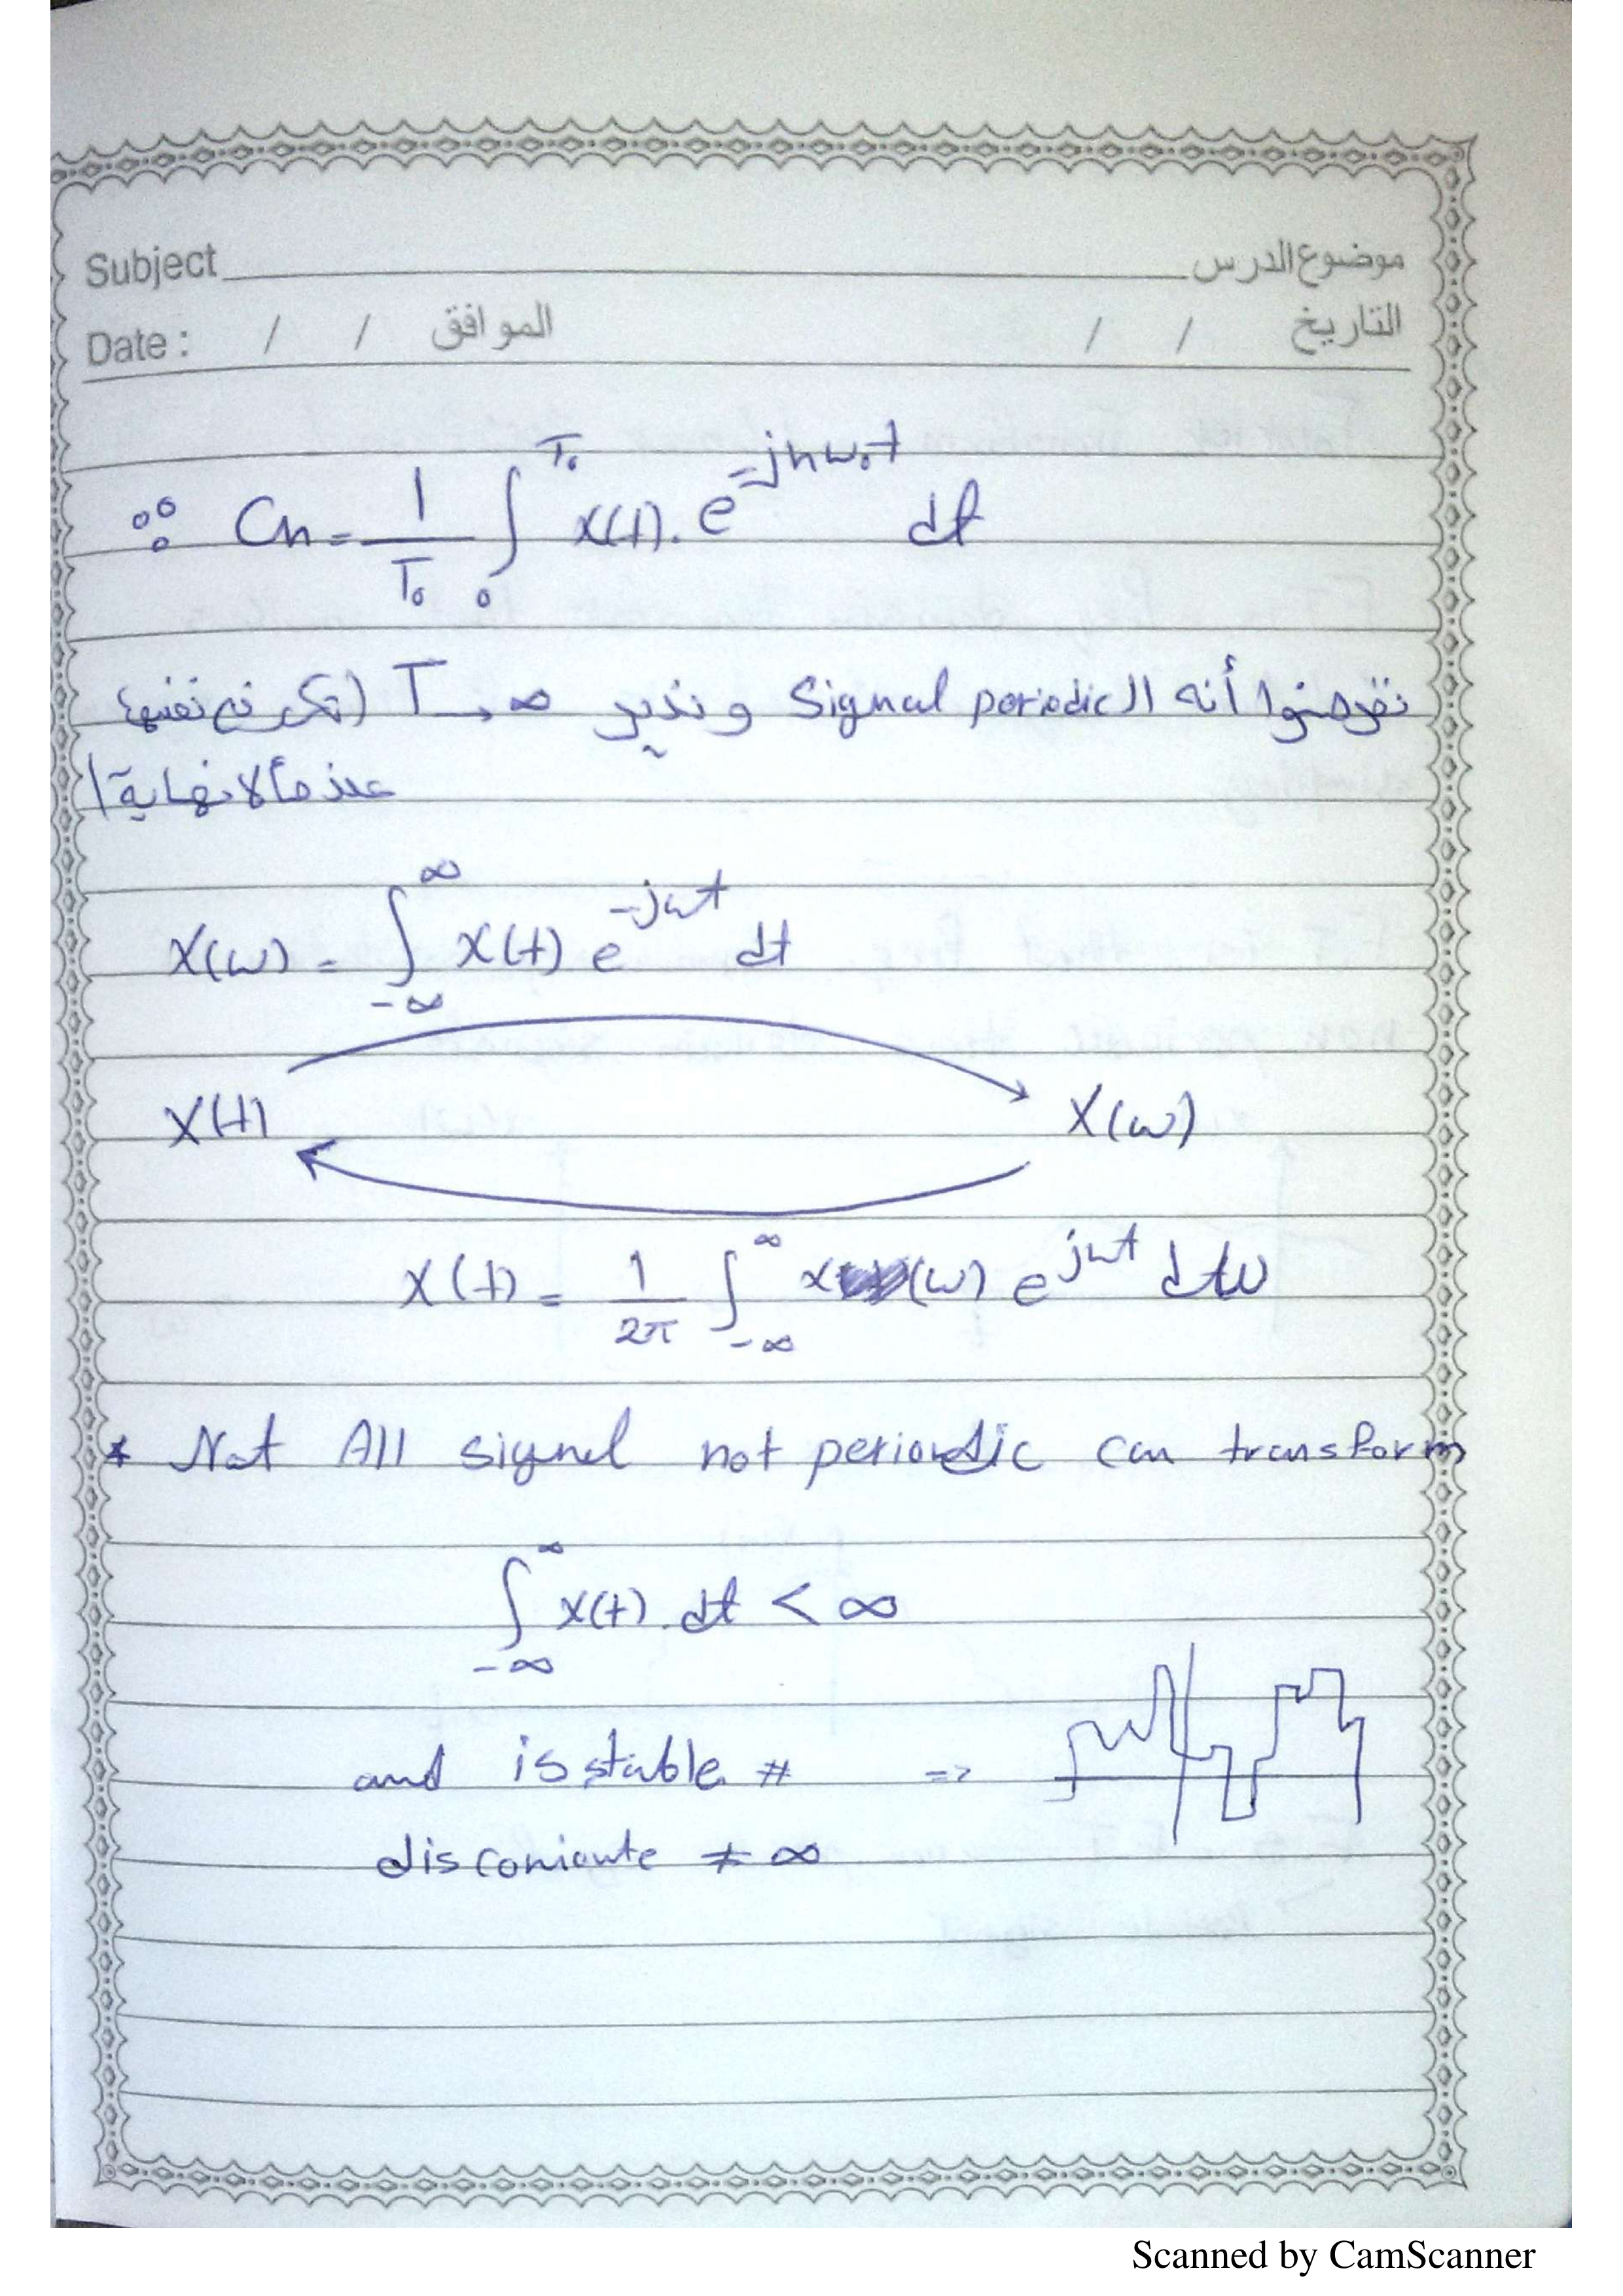 Subject موضوع الدرس
Date : / / الموافق / / التاريخ
∴ Cn = 1/T₀ ∫₀^T₀ x(t). e^-jnω₀t dt
نفرضوا أنه الـ Signal periodic و نذير T → ∞ (تكرر في نفسها
عند مالانهاية)
X(ω) = ∫_-∞^∞ x(t) e^-jωt dt
X(t) X(ω)
X(t) = 1/2π ∫_-∞^∞ x(ω) e^jωt dω
* Not All signel not periodic can transform
∫_-∞^∞ x(t). dt < ∞
and is stable # =>
≠ ∞
Scanned by CamScanner